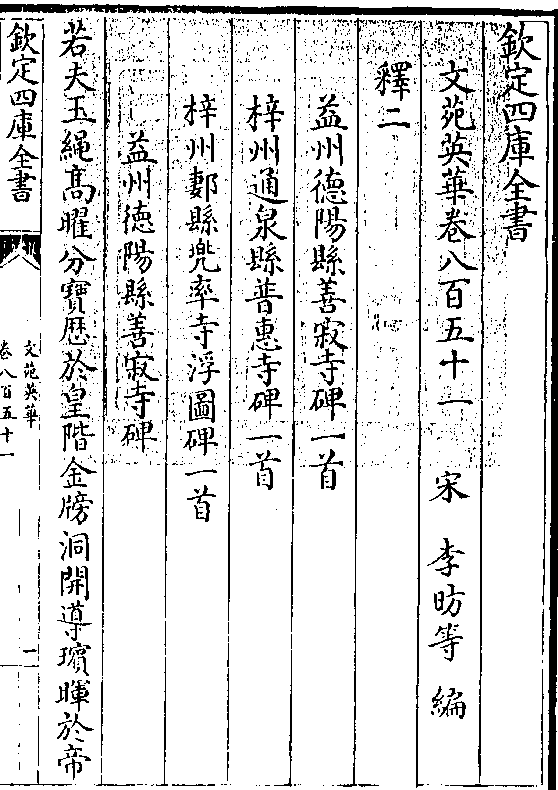 欽定四庫全書
文苑英華卷八百五十一 宋 李昉等 編
釋二
益州德陽縣善寂寺碑一首
梓州通泉縣普惠寺碑一首
梓州郪縣兜率寺浮圖碑一首
益州德陽縣善寂寺碑
若夫玉繩髙曜分寶歴於皇階金牓洞開導璸暉於帝
欽定四庫全書
文苑英華
卷八百五十一
一